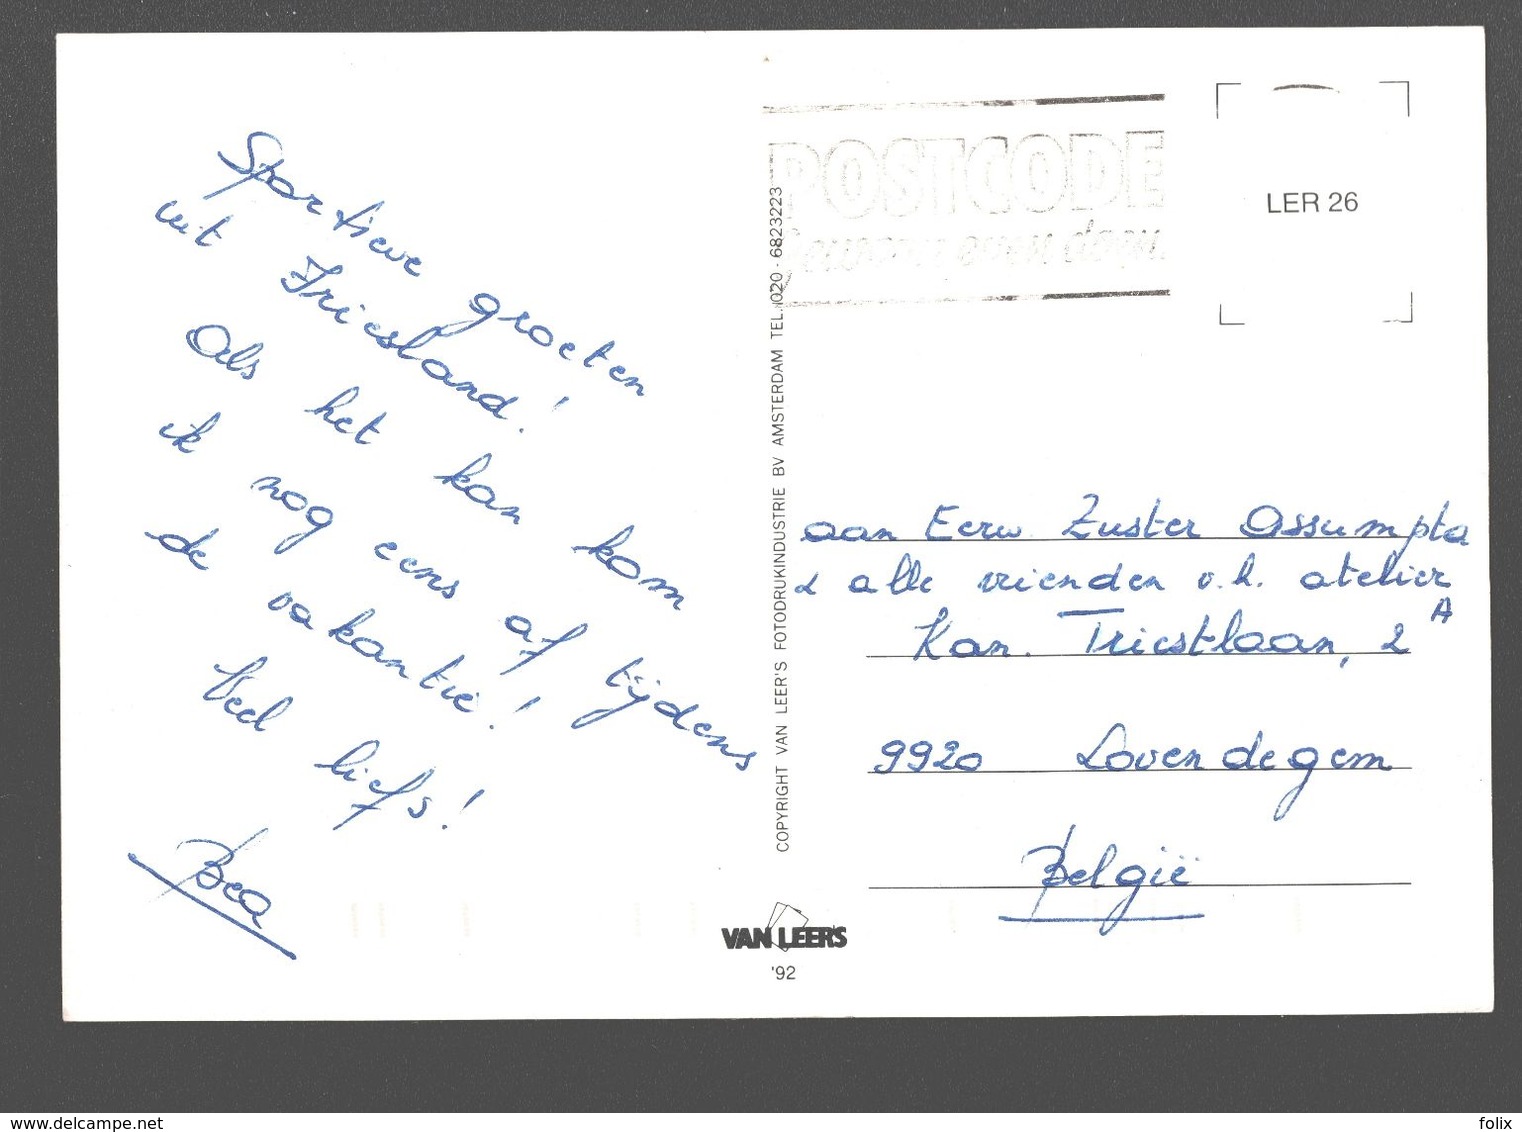 Sportieve groeten
uit Friesland!
Als het kan kom
ik nog eens af tijdens
de vakantie!
Veel liefs!
Bea
COPYRIGHT VAN LEER'S FOTODRUKINDUSTRIE BV AMSTERDAM TEL. 020 - 6823223
VAN LEER'S
'92
POSTCODE
LER 26
aan Eerw. Zuster Assumpta
& alle vrienden v.h. atelier
Kan. Triestlaan, 2A
9920 Lovendegem
België
© for delcampe.net
folix